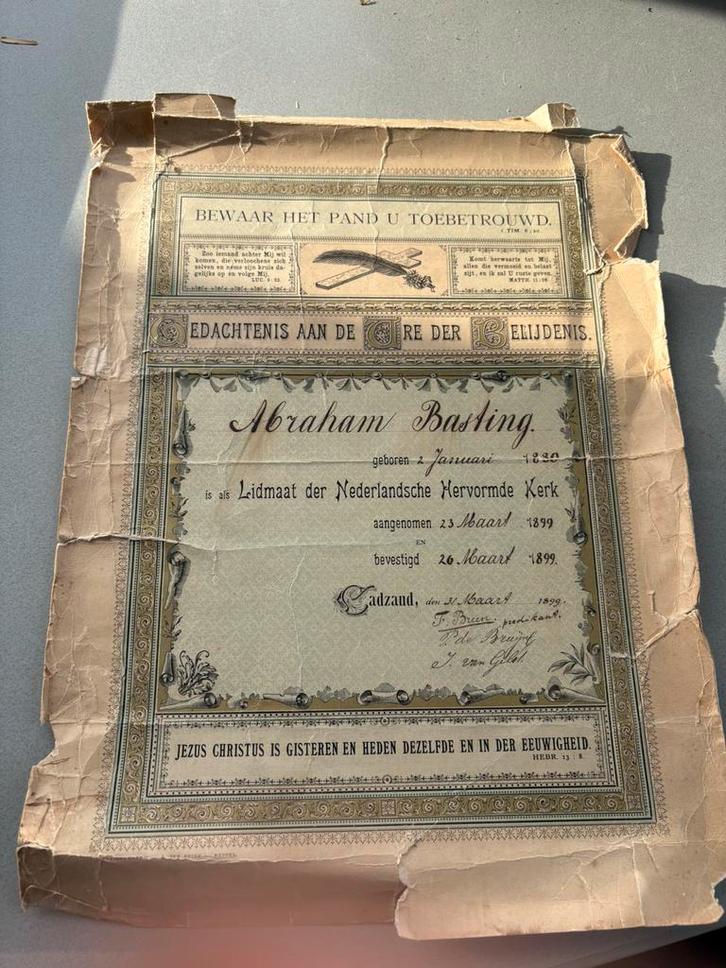 BEWAAR HET PAND U TOEBETROUWD.
1 TIM. 6:20.
Zoo iemand achter Mij wil
komen, die verloochene zich
zelven en neme zijn kruis da-
gelijks op en volge Mij.
LUC. 9:23.
Komt herwaarts tot Mij,
allen die vermoeid en belast
zijt, en ik zal U ruste geven.
MATTH. 11:28.
GEDACHTENIS AAN DE URE DER BELIJDENIS.
Abraham Basting.
geboren 2 Januari 1880
is als Lidmaat der Nederlandsche Hervormde Kerk
aangenomen 23 Maart 1899
EN
bevestigd 26 Maart 1899.
Cadzand, den 31 Maart 1899.
F. Brun. predikant.
P. de Bruyne
J. van Gelst.
JEZUS CHRISTUS IS GISTEREN EN HEDEN DEZELFDE EN IN DER EEUWIGHEID.
HEBR. 13:8.